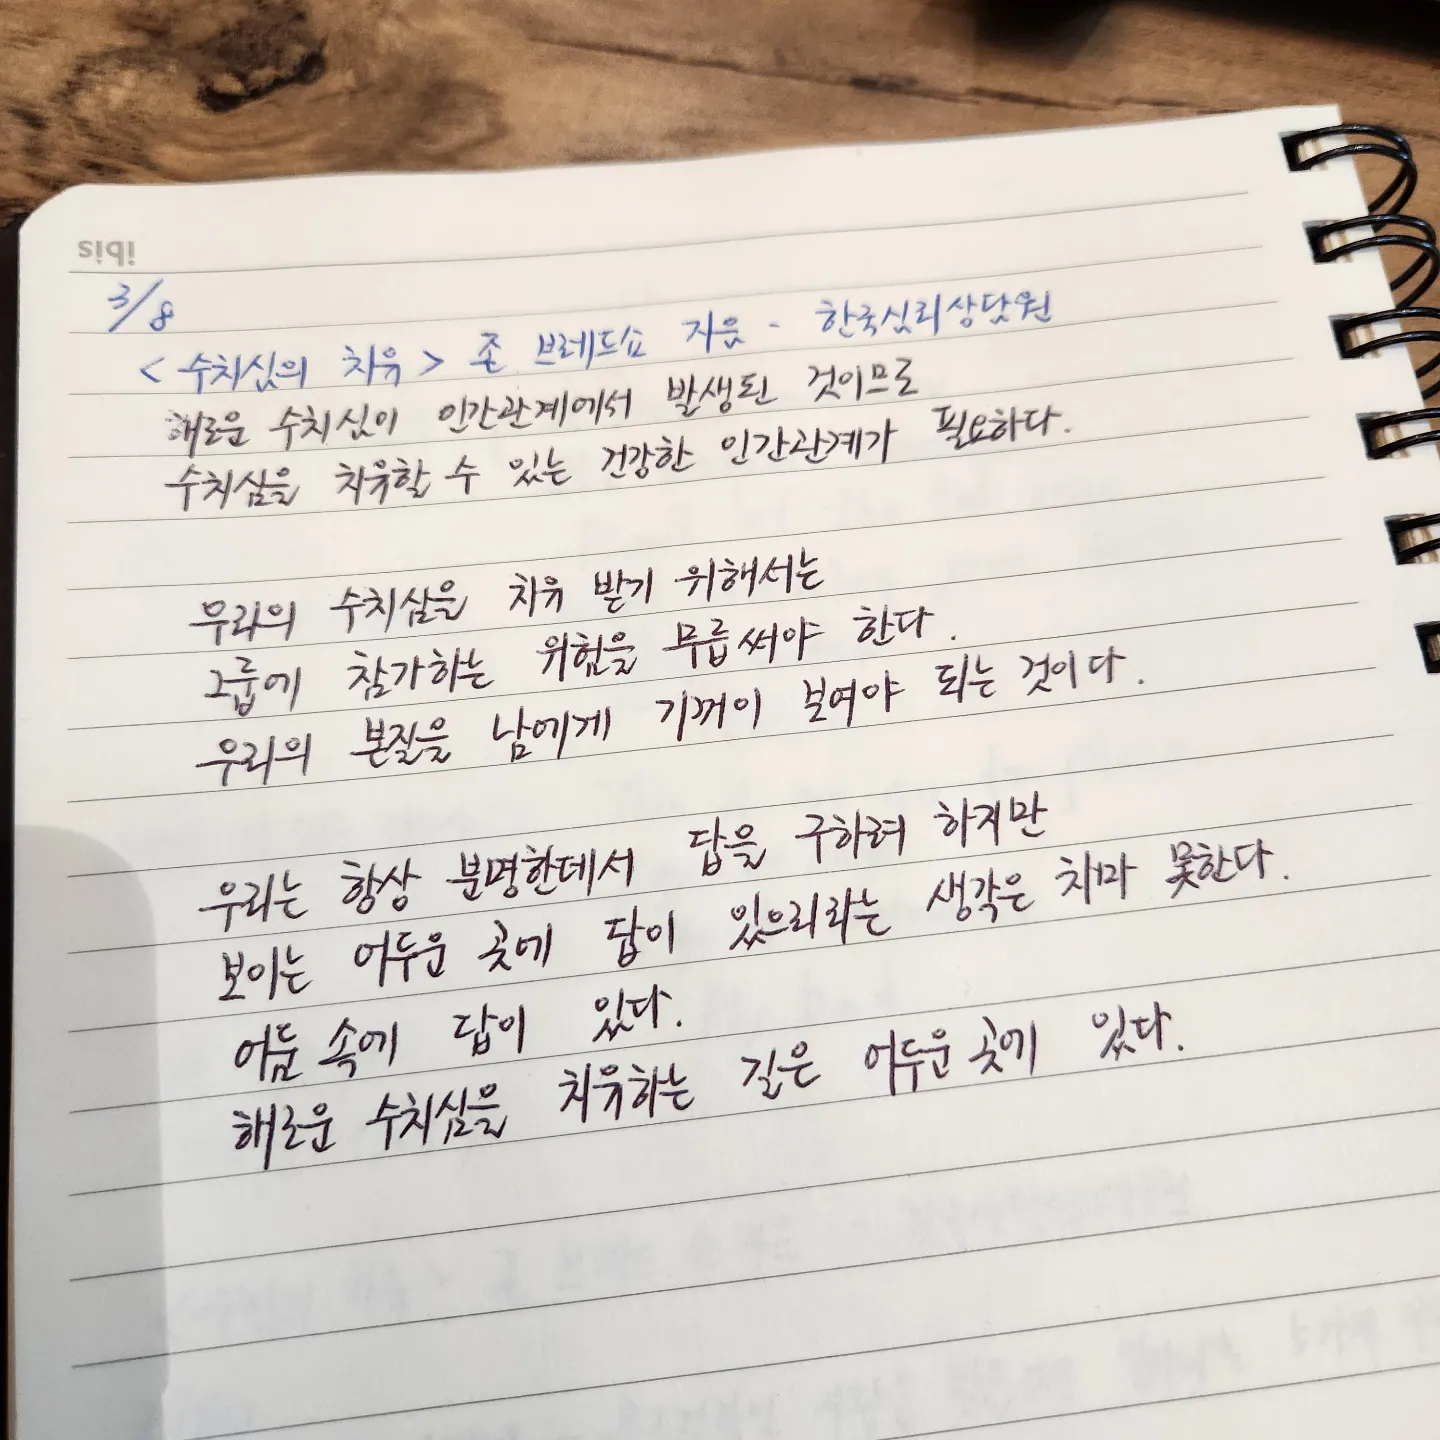 ibis
3/8
<수치심의 치유> 존 브레드쇼 지음 - 한국심리상담원
해로운 수치심이 인간관계에서 발생된 것이므로
수치심을 치유할 수 있는 건강한 인간관계가 필요하다.
우리의 수치심을 치유 받기 위해서는
그룹에 참가하는 위험을 무릅써야 한다.
우리의 본질을 남에게 기꺼이 보여야 되는 것이다.
우리는 항상 분명한데서 답을 구하려 하지만
보이는 어두운 곳에 답이 있으리라는 생각은 차마 못한다.
어둠 속에 답이 있다.
해로운 수치심을 치유하는 길은 어두운 곳에 있다.